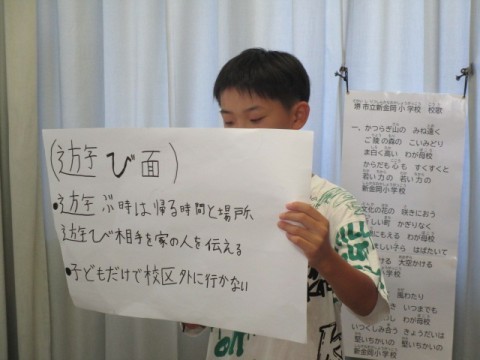 (遊び面)
●遊ぶ時は帰る時間と場所
遊び相手を家の人を伝える
●子どもだけで校区外に行かない
堺市立新金岡小学校 校歌
一、かつらぎ山の みね遠く
ご陵の森の こいみどり
ま日く高い わが母校
からだも心も すくすくと
若い力の 若い力の
新金岡小学校
文化の花の 咲きにおう
しい町 かぎりなく
にもえる わが母校
しい子ら はばたいて
大空かける
小学校
風わたり
いつまでも
し わが母校
いつくしみ合う きょうだいは
堅いちかいの 堅いちかいの
新金岡小学校